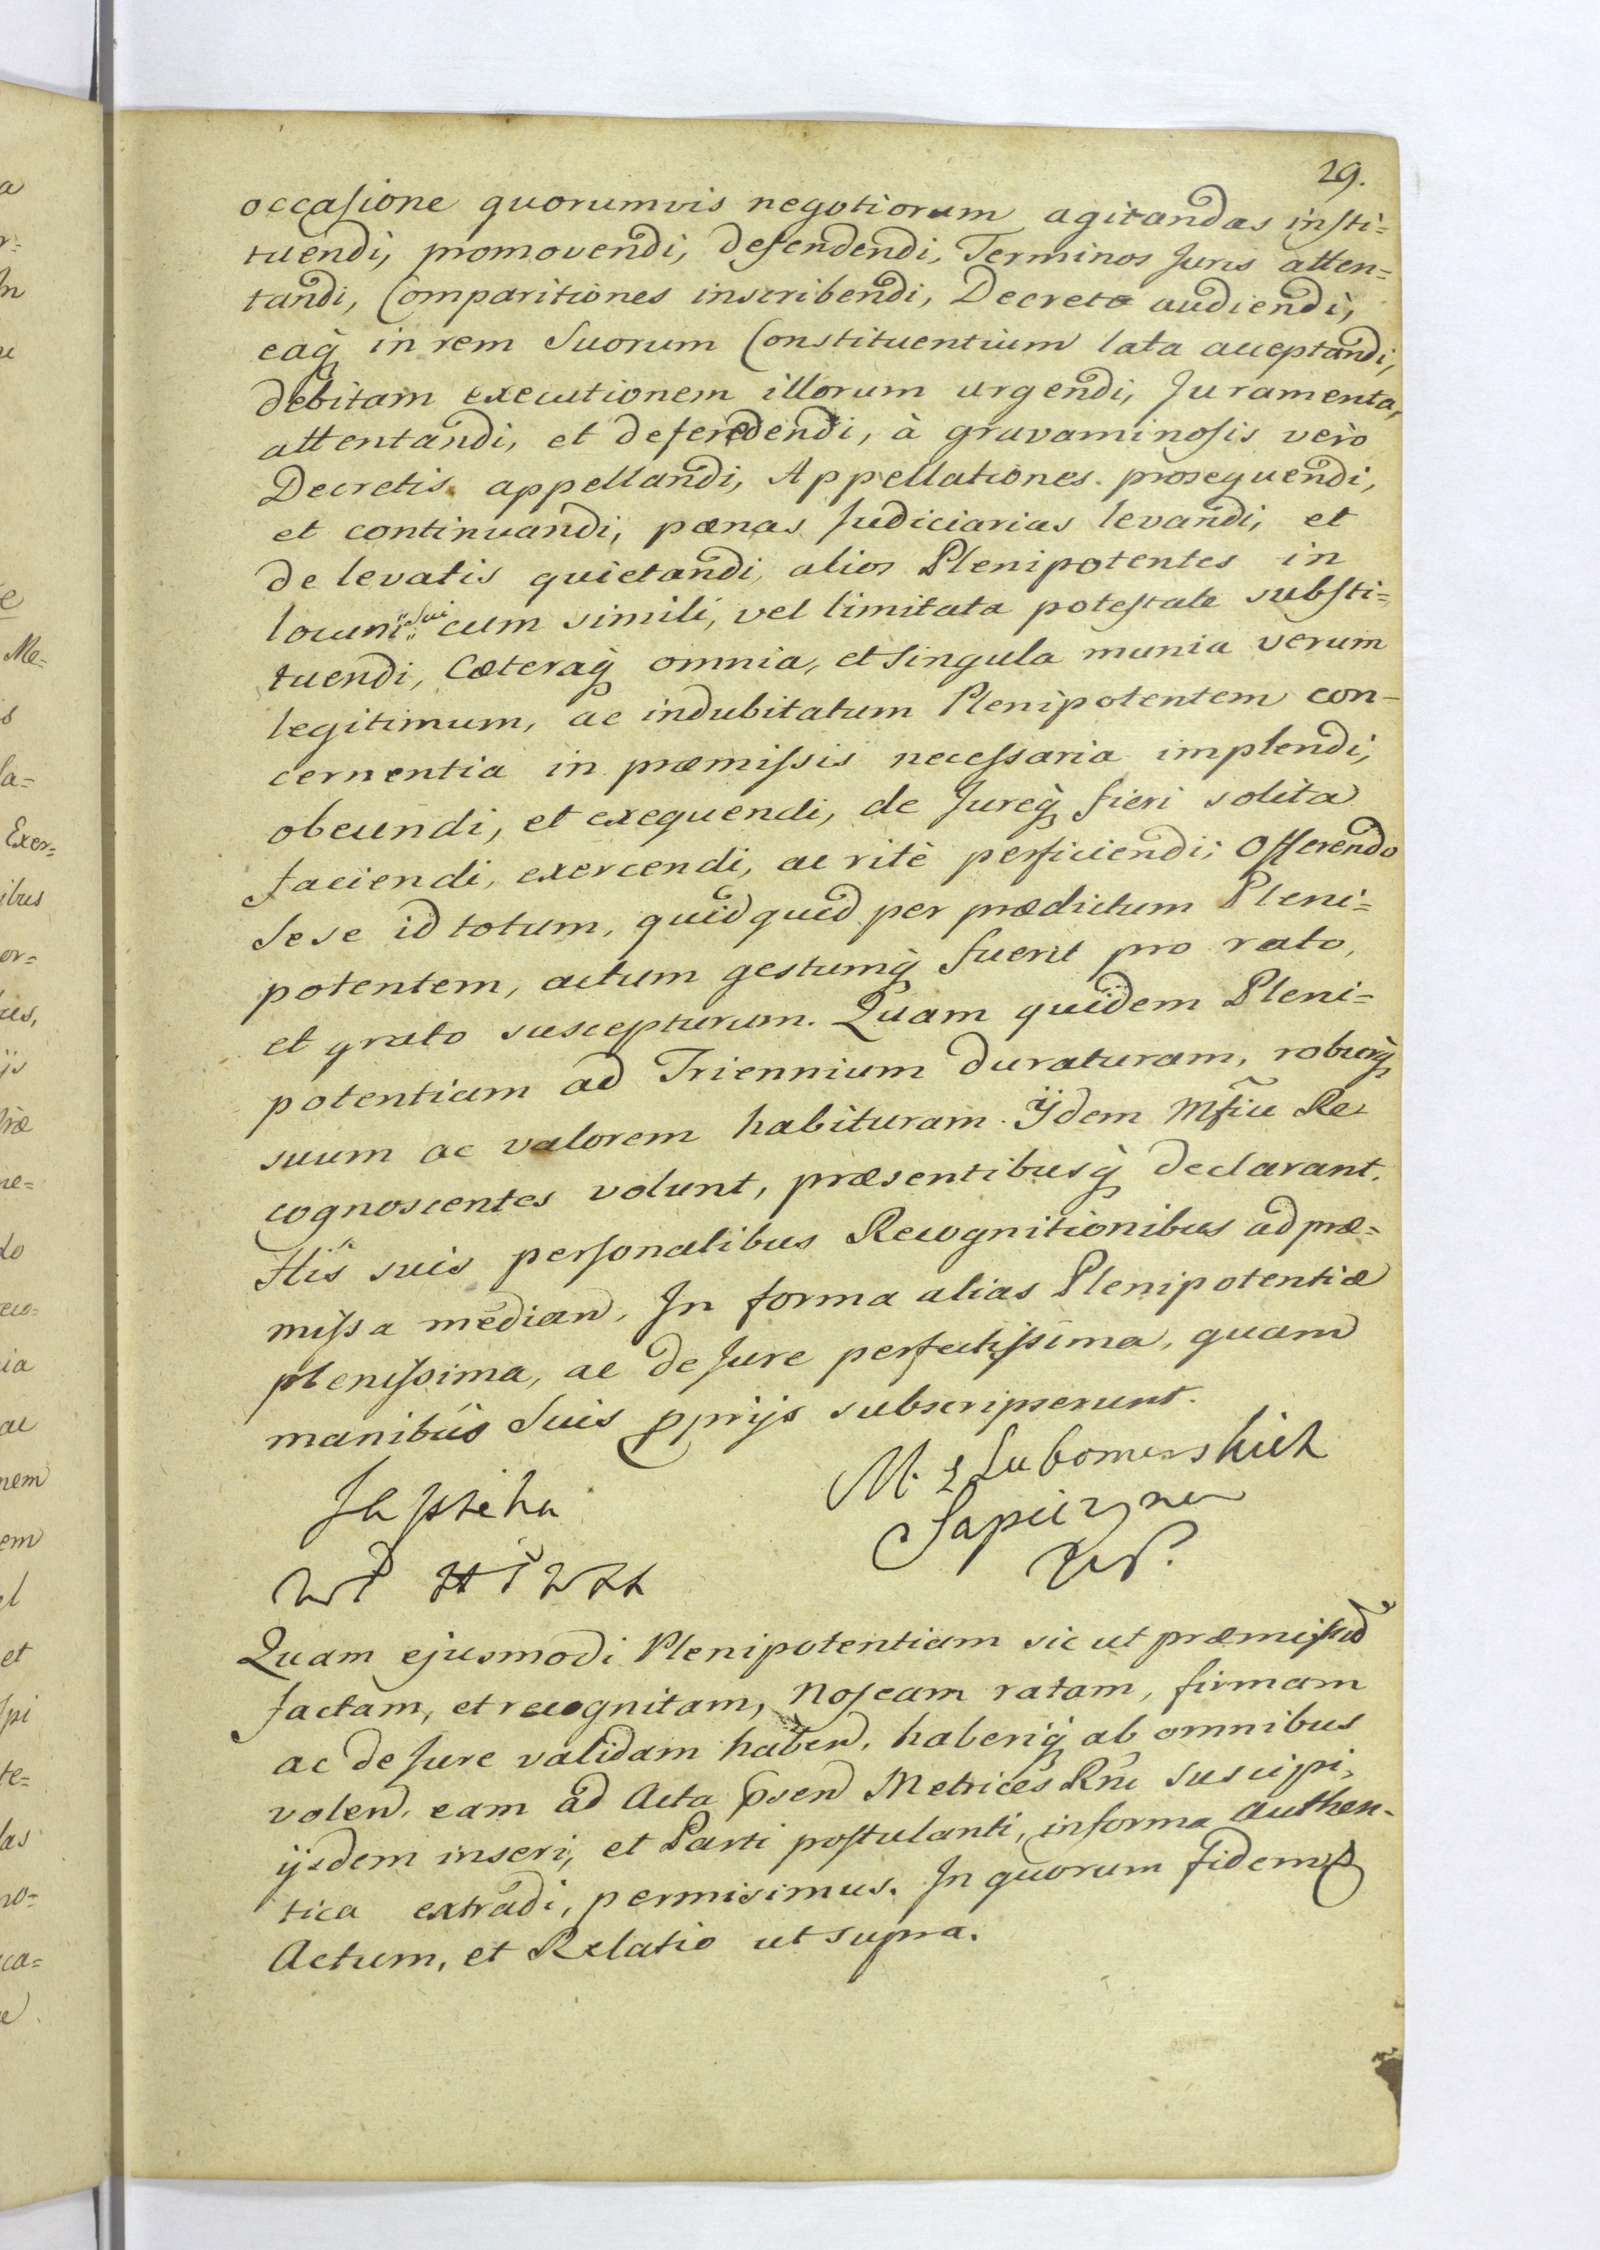 29.
occasione quorumvis negotiorum agitandas insti=
tuendi, promovendi, defendendi, Terminos Juris atten=
tandi, Comparitiones inscribendi, Decreta audiendi,
eaq̀ in rem Suorum Constituentium lata acceptandi,
debitam executionem illorum urgendi, Juramenta,
attentandi, et deferedendi, à gravaminosis vero
Decretis appellandi, Appellationes prosequendi,
et continuandi, pœnas Judiciarias levandi, et
de levatis quietandi, alios Plenipotentes in
locum sui cum simili, vel limitata potestate substi=
tuendi, Cæteraq̀ omnia, et singula munia verum
legitimum, ac indubitatum Plenipotentem con-
cernentia in præmissis necessaria implendi,
obeundi, et exequendi, de Jureq̀ fieri solita
faciendi, exercendi, ac ritè perficiendi; Offerendo
Sese id totum, quidquid per prædictum Pleni=
potentem, actum gestumq̀ fuerit pro rato,
et grato suscepturum. Quam quidem Pleni=
potentiam ad Triennium duraturam, roburq̀
suum ac valorem habituram Ijdem Mfici Re
cognoscentes volunt, præsentibusq̀ declarant.
His suis personalibus Recognitionibus ad præ=
missa median. In forma alias Plenipotentiæ
plenissima, ac de Jure perfectissima, quam
manibus Suis pprijs subscripserunt.
M. z Lubomirskich
Sapiezyna
Quam ejusmodi Plenipotentiam sic ut præmissũ
factam, et recognitam, Noscam ratam, firmam
ac de Jure validam haben. haberiq̀ ab omnibus
volen. eam ad Acta psen Metrices Rñi Suscipi,
ijsdem inseri, et Parti postulanti, in forma authen-
tica extradi, permisimus. In quorum fidem
Actum, et Relatio ut supra.